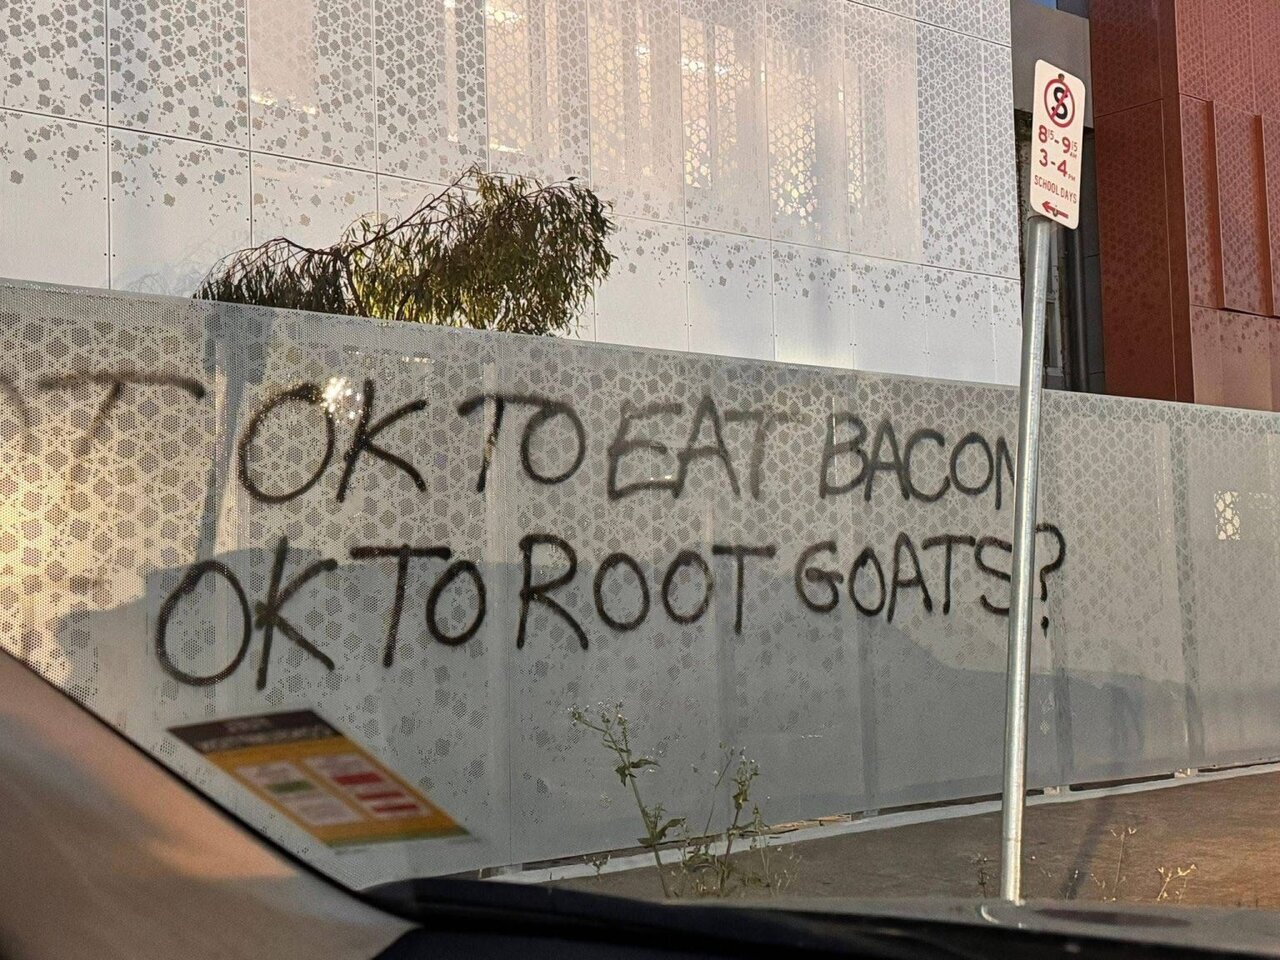 OK TO EAT BACON
OK TO ROOT GOATS?
S
8:15-9:15 AM
3-4 PM
SCHOOL DAYS